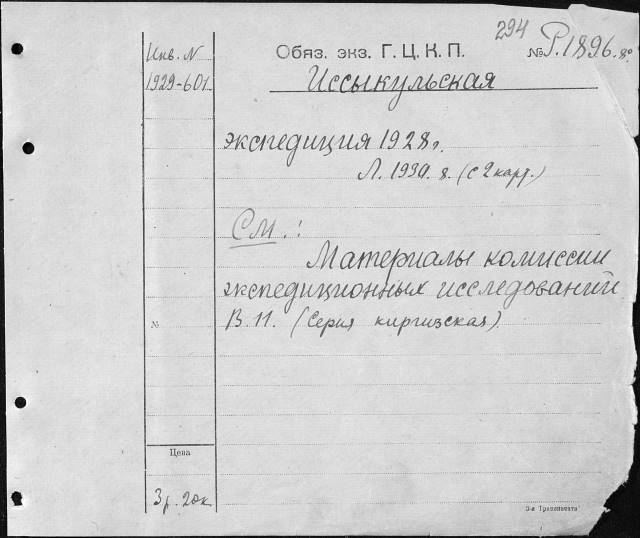 294
Инв. N
1929-601.
Обяз. экз. Г. Ц. К. П.
№ Р.1896. 8°
Иссыкульская
экспедиция 1928 г.
Л. 1930. 8. (с 2 карт.)
См.:
Материалы комиссии
экспедиционных исследований
В. 11. (Серия киргизская)
№
Цена
3 р. 20 к
3-я Трансиечата